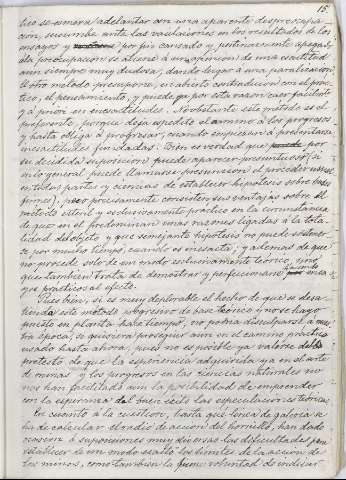 15
tico se esmera adelantar con una aparente despreocupa-
cion, sucumbe ante las variaciones en los resultados de los
ensayos y por fin cansado y pertinazmente apegado
ála preocupacion se atiene á una opinion de una exactitud
aun siempre muy dudosa, dando lugar á una paralizacion
El otro método presupone, en abierta contradicion con el prác-
tico, el pensamiento, y puede por esta razon caer facilmente
y á priori en inexactitudes. No obstante este método es el
preferente, porque deja espedito el camino á los progresos
y hasta obliga á progresar, cuando empiezan á probantarse
inexactitudes fundadas. Bien es verdad que por
su decidida suposicion puede aparecer presuntuoso (si
en lo general puede llamarse presuncion el proceder usual
en todas partes y ciencias de establecer hipótesis sobre bases
firmes), pero precisamente consisten sus ventajas sobre el
método estéril y esclusivamente práctico en la circunstancia
de que en él predominan unas razones ligadas á la tota-
lidad del objeto y que semejante hipótesis no puede sostener-
se por mucho tiempo, cuando es inexacta, y ademas de que
no procede solo de un modo esclusivamente teórico, sino
que tambien trata de demostrar y perfeccionar haciendo ensa-
yos prácticos al efecto.
Pues bien, si es muy deplorable el hecho de que se desa-
tienda este método progresivo de base teórica y no se haya
puesto en planta hace tiempo, no podria disculparse á nues-
tra época, si quisiera proseguir aun en el camino práctico
usado hasta ahora, pues no es posible ya valerse del
pretesto de que la esperiencia adquirida ya en el arte
de minas y los progresos en las ciencias naturales no
nos han facilitado aun la posibilidad de emprender
con la esperanza del buen éxito las especulaciones teóricas.
En cuanto á la cuestion, hasta que linea de galeria se
ha de calcular el radio de accion del hornillo, han dado
ocasion á suposiciones muy diversas las dificultades para
establecer de un modo exacto los límites de la accion de
las minas, como tambien la voluntad de incluir